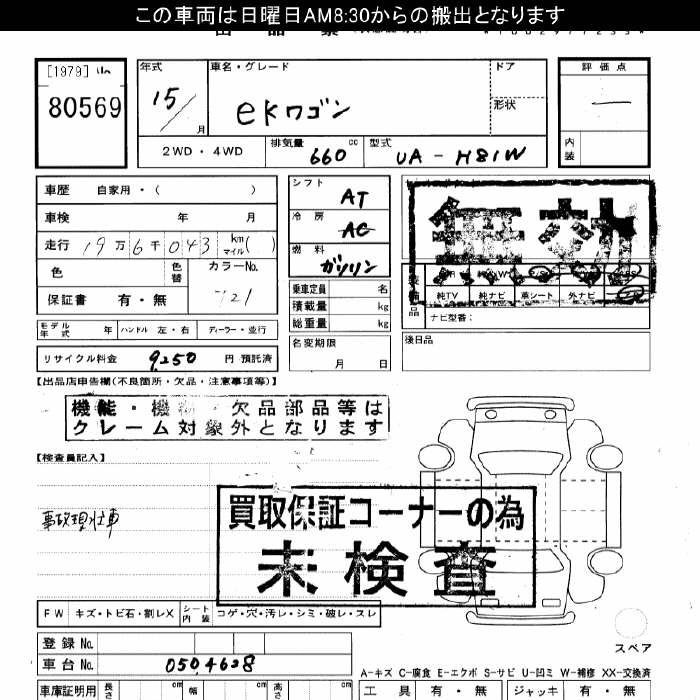 この車両は日曜日AM8:30からの搬出となります
[1979]
80569
年式 車名・グレード ドア 評価点
15/月 eKワゴン 形状 —
2WD・4WD 排気量 660 cc 型式 UA-H81W 内装
車歴 自家用・( ) シフト AT
車検 年 月 冷房 AC
走行 19万6千043 km マイル( ) 燃料 ガソリン
無効
色 色替 カラーNo.
保証書 有・無 721
乗車定員 名
積載量 kg
総重量 kg
純TV 純ナビ 革シート 外ナビ
ナビ型番:
モデル年式 年 ハンドル 左・右 ディーラー・並行
名変期限 月 日
後日品
リサイクル料金 9,250 円 預託済
【出品店申告欄(不良箇所・欠品・注意事項等)】
機能・機 ・欠品部品等は
クレーム対象外となります
【検査員記入】
買取保証コーナーの為
未検査
事故現状車
FW キズ・トビ石・割レX シート内装 コゲ・穴・汚レ・シミ・破レ・スレ
スペア
登録No.
車台No. 0504628
A-キズ C-腐食 E-エクボ S-サビ U-凹ミ W-補修 XX-交換済
車庫証明用 長さ cm 幅 cm 高さ cm 工具 有・無 ジャッキ 有・無